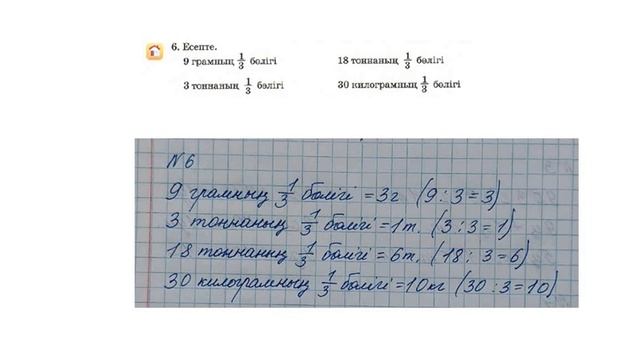 6. Есепте.
9 грамның 1/3 бөлігі 18 тоннаның 1/3 бөлігі
3 тоннаның 1/3 бөлігі 30 килограмның 1/3 бөлігі
N6
9 грамның 1/3 бөлігі = 3г (9 : 3 = 3)
3 тоннаның 1/3 бөлігі = 1т. (3 : 3 = 1)
18 тоннаның 1/3 бөлігі = 6т. (18 : 3 = 6)
30 килограмның 1/3 бөлігі = 10кг (30 : 3 = 10)